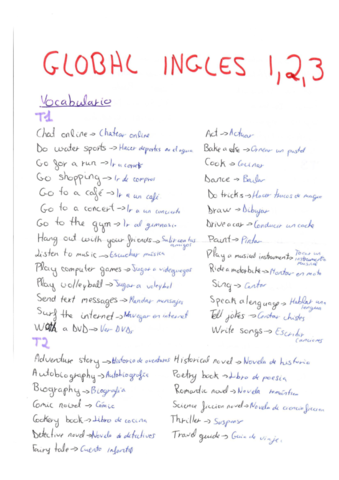 GLOBAL INGLES 1,2,3
Vocabulario
T1
Chat online → Chatear online
Do water sports → Hacer deportes en el agua
Go for a run → Ir a correr
Go shopping → Ir de compras
Go to a café → Ir a un café
Go to a concert → Ir a un concierto
Go to the gym → Ir al gimnasio
Hang out with your friends → Salir con tus amigos
Listen to music → Escuchar música
Play computer games → Jugar a videojuegos
Play volleyball → Jugar a voleybol
Send text messages → Mandar mensajes
Surf the internet → Navegar en internet
Watch a DVD → Ver DVDs
Act → Actuar
Bake a cake → Cocinar un pastel
Cook → Cocinar
Dance → Bailar
Do tricks → Hacer trucos de magia
Draw → Dibujar
Drive a car → Conducir un coche
Paint → Pintar
Play a musical instrument → Tocar un instrumento musical
Ride a motorbike → Montar en moto
Sing → Cantar
Speak a language → Hablar un idioma
Tell jokes → Contar chistes
Write songs → Escribir canciones
T2
Adventure story → Historia de aventuras
Autobiography → Autobiografía
Biography → Biografía
Comic novel → Cómic
Cookery book → Libro de cocina
Detective novel → Novela de detectives
Fairy tale → Cuento infantil
Historical novel → Novela de historia
Poetry book → Libro de poesía
Romantic novel → Novela romántica
Science fiction novel → Novela de ciencia ficción
Thriller → Suspense
Travel guide → Guía de viaje.